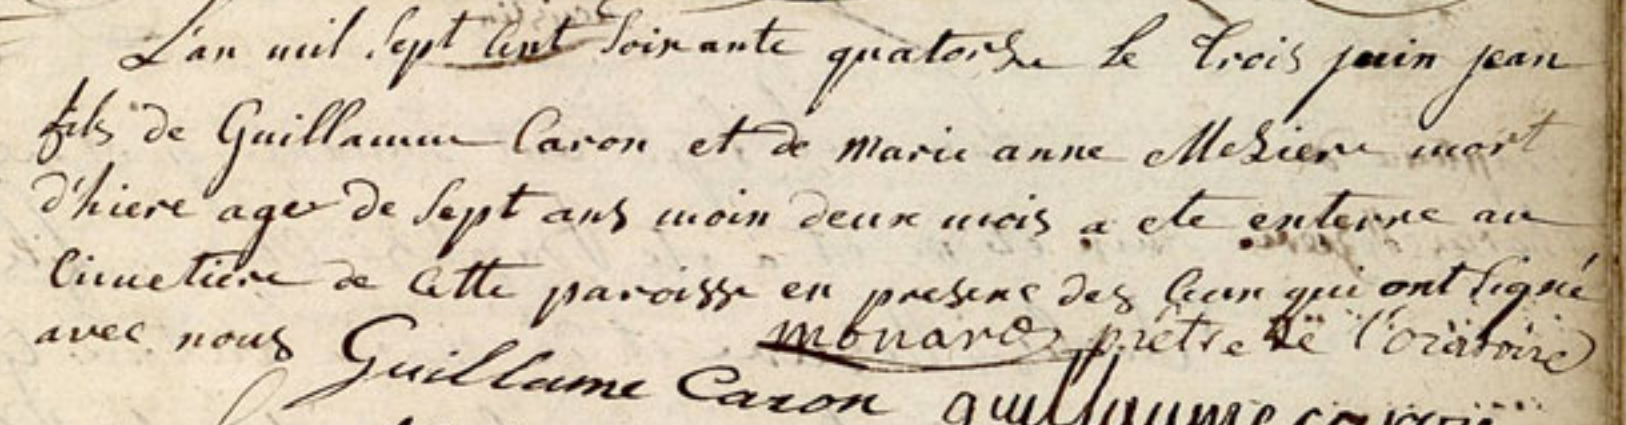 L'an mil sept cent soixante quatorze le trois juin jean
fils de Guillaume Caron et de marie anne Meziere mort
d'hiere agé de sept ans moin deux mois a ete enterre au
Cimetiere de cette paroisse en presence des ceux qui ont signé
avec nous monard prêtre de l'oratoire
Guillame Caron guillaume caron